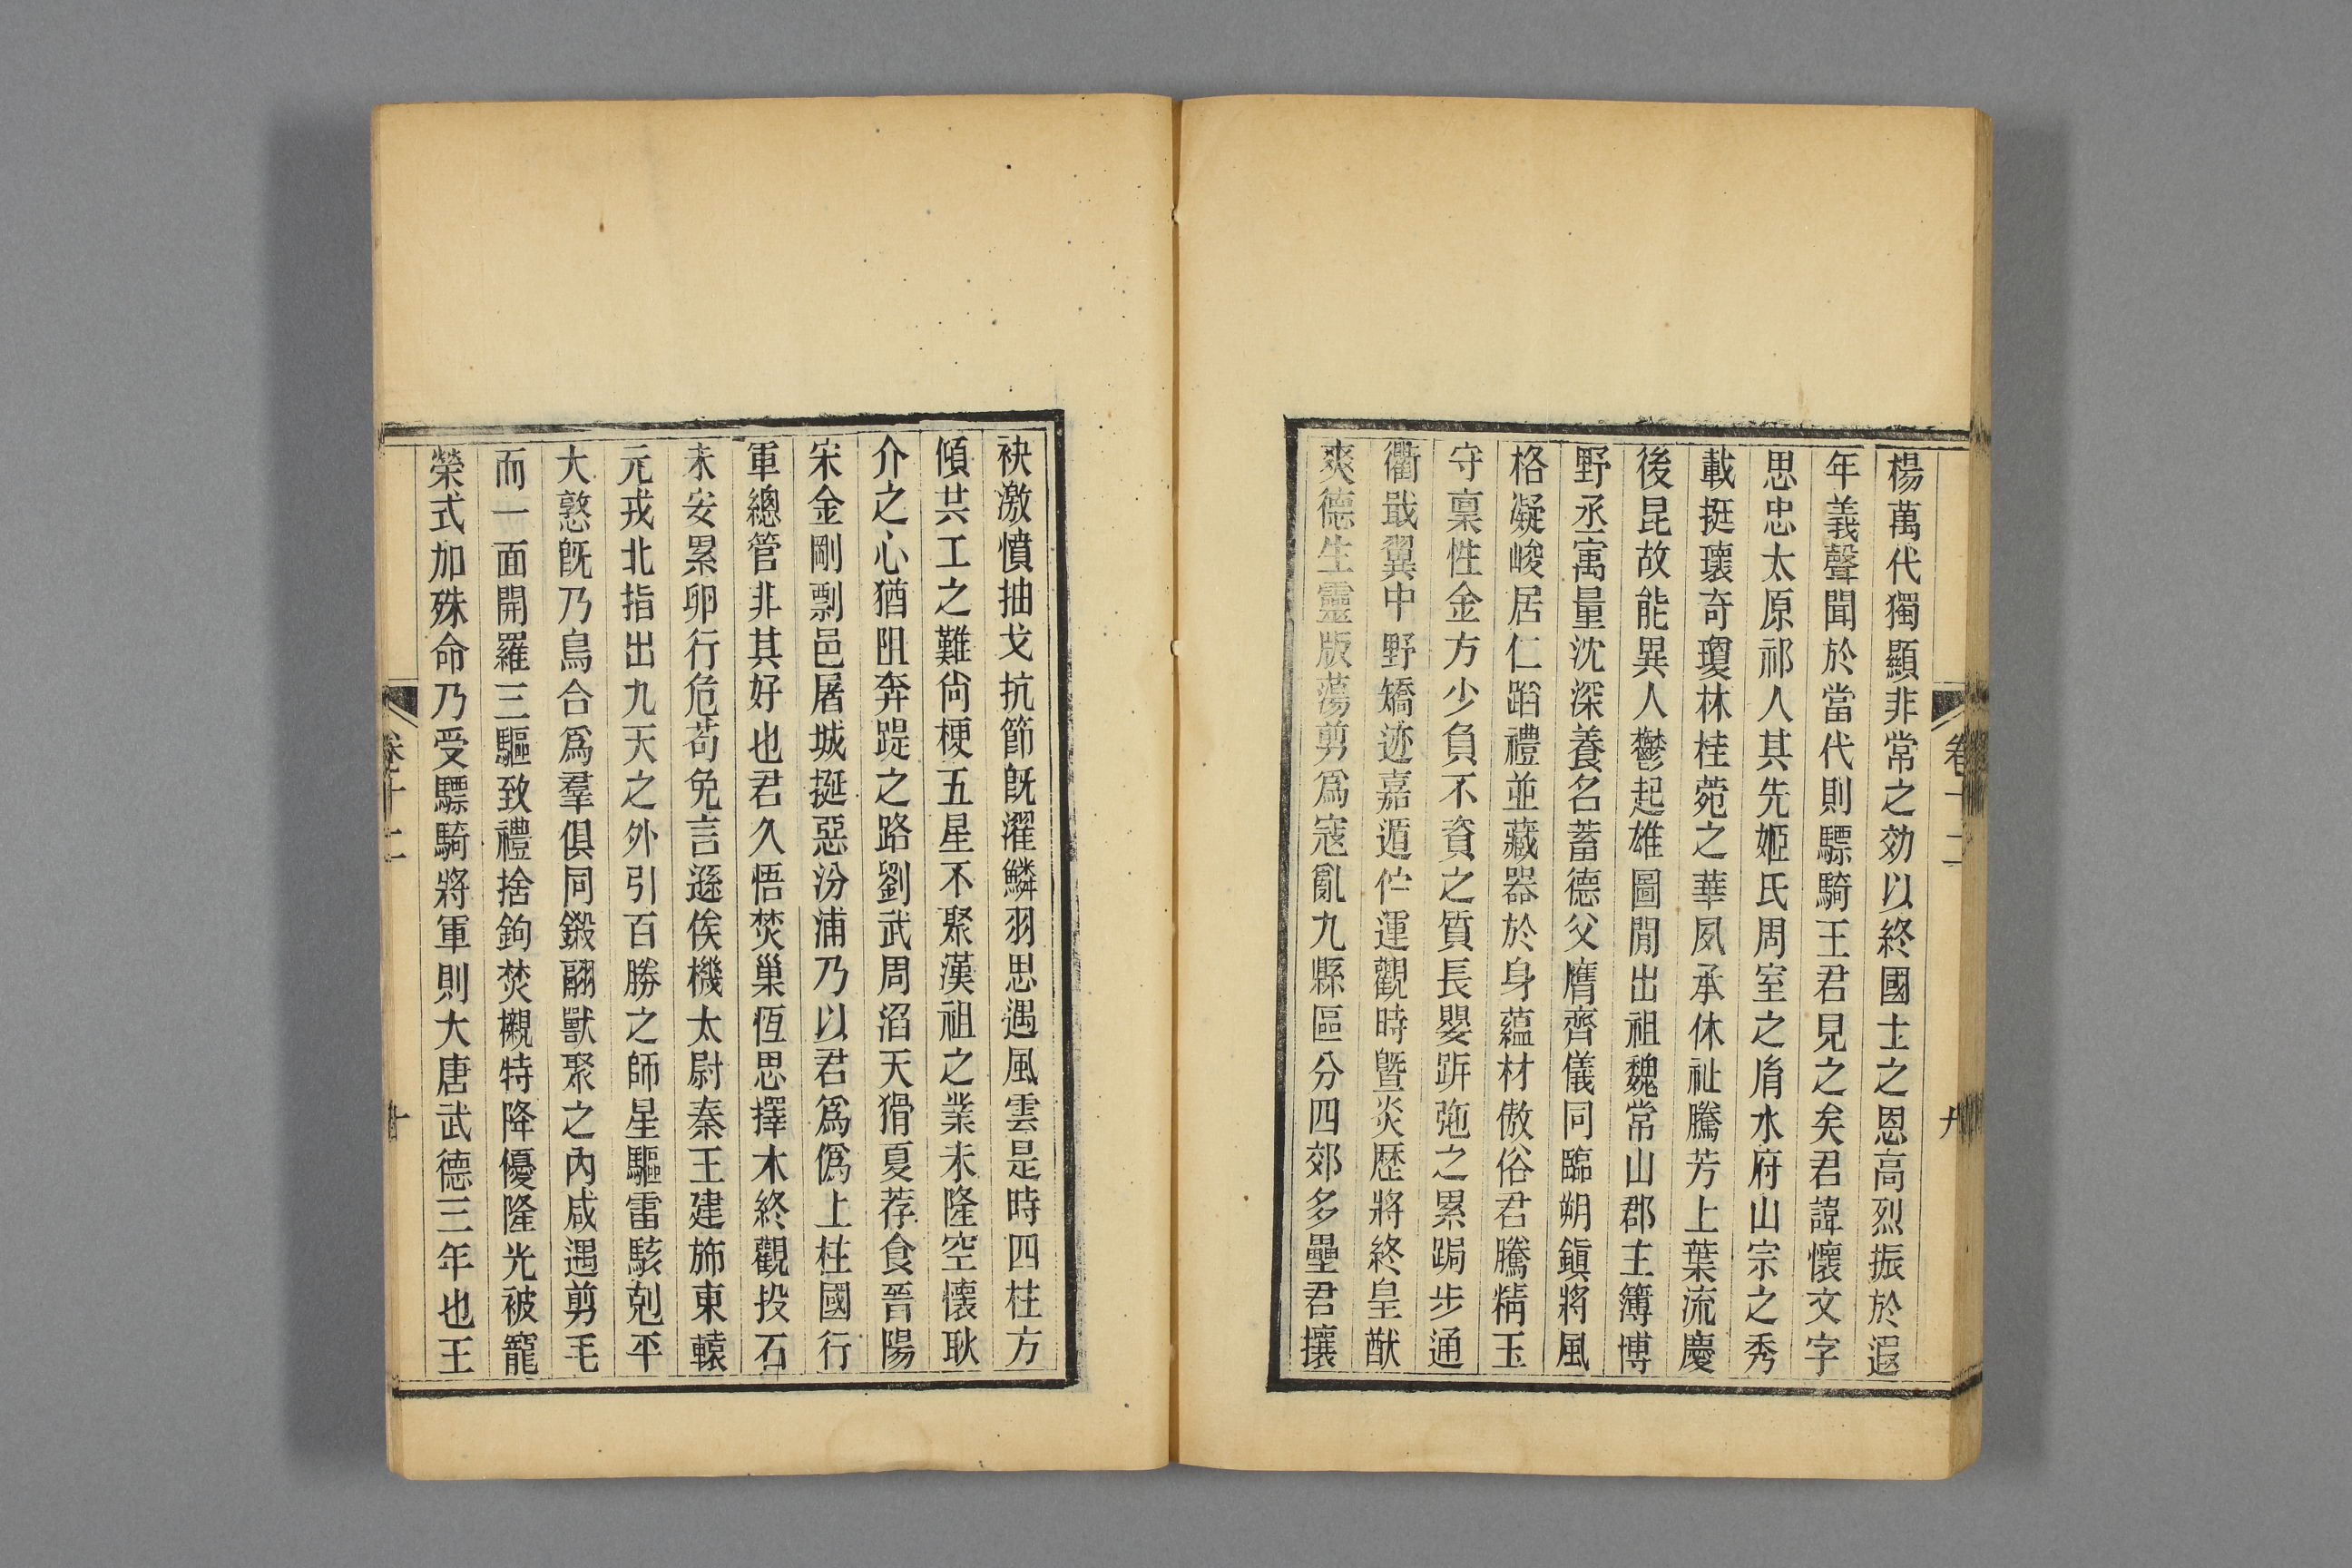 楊萬代獨顯非常之効以終國士之恩高烈振於遐
年義聲聞於當代則驃騎王君見之矣君諱懷文字
思忠太原祁人其先姬氏周室之胤水府山宗之秀
載挺瓌奇瓊林桂菀之華夙承休祉騰芳上葉流慶
後昆故能異人鬱起雄圖閒出祖魏常山郡主簿博
野丞寓量沈深養名蓄德父膺齊儀同臨朔鎮將風
格凝峻居仁蹈禮並藏器於身蘊材傲俗君騰精玉
守稟性金方少負不資之質長嬰跅弛之累跼步通
衢戢翼中野矯迹嘉遁伫運觀時曁炎歴將終皇猷
爽德生靈版蕩剪爲寇亂九縣區分四郊多壘君攘
卷十二
九
袂激憤抽戈抗節旣濯鱗羽思遇風雲是時四柱方
傾共工之難尙梗五星不聚漢祖之業未隆空懷耿
介之心猶阻奔踶之路劉武周滔天猾夏荐食晉陽
宋金剛剽邑屠城挻惡汾浦乃以君爲僞上柱國行
軍總管非其好也君久悟焚巢恆思擇木終觀投石
未安累卵行危苟免言遜俟機太尉秦王建旆東轅
元戎北指出九天之外引百勝之師星驅雷駭剋平
大憝旣乃烏合爲羣俱同鎩翮獸聚之內咸遇剪毛
而一面開羅三驅致禮捨鉤焚櫬特降優隆光被寵
榮式加殊命乃受驃騎將軍則大唐武德三年也王
卷十二
十